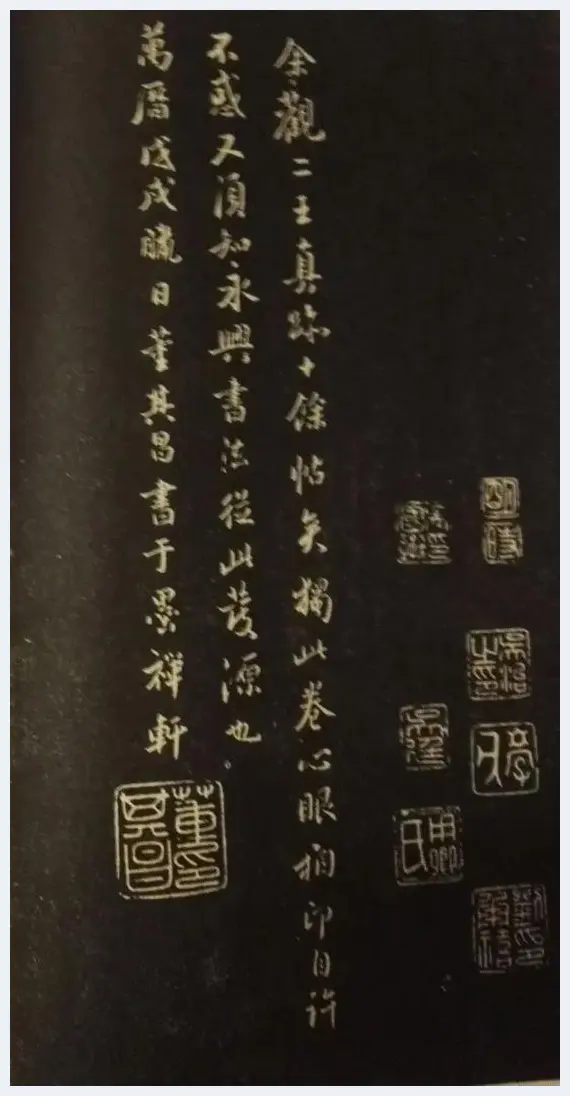 余觀二王真跡十餘帖矣獨此卷心眼相印自許
不惑又須知永興書法從此發源也
萬曆戊戌臘日董其昌書于墨禪軒
董印其昌